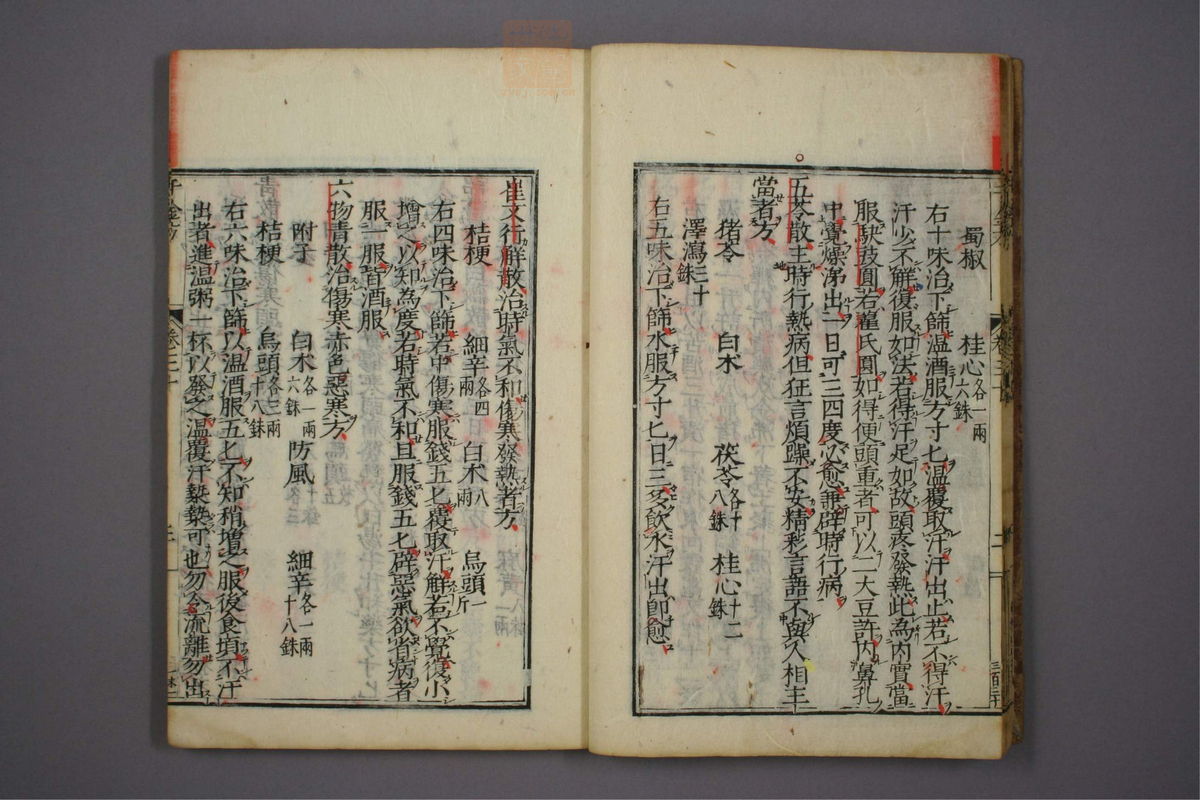 蜀椒　桂心各一兩六銖
右十味治下篩温酒服方寸匕温覆取汗汗出止若不得汗
汗少不解復服如法若得汗足如故頭疼發熱此為内實當
服駃豉圓若藿氏圓如得便頭重者可以二大豆許内鼻孔
中覺燥涕出一日可三四度必愈兼辟時行病
五苓散主時行熱病但狂言煩躁不安精彩言語不與人相主
當者方
猪苓　白朮　茯苓各十八銖　桂心十二銖
澤瀉三十銖
右五味治下篩水服方寸匕日三多飲水汗出即愈
崔文行解散治時氣不和傷寒發熱者方
桔梗　細辛各四兩　白朮八兩　烏頭一斤
右四味治下篩若中傷寒服錢五匕覆取汗解若不覺復小
増之以知為度若時氣不和旦服錢五匕辟惡氣欲省病者
服一服皆酒服
六物青散治傷寒赤色惡寒方
附子　白朮各一兩六銖　防風　細辛各一兩十八銖
桔梗　烏頭各三兩十八銖
右六味治下篩以温酒服五匕不知稍増之服後食頃不汗
出者進温粥一杯以發之温覆汗漐漐可也勿令流離勿出